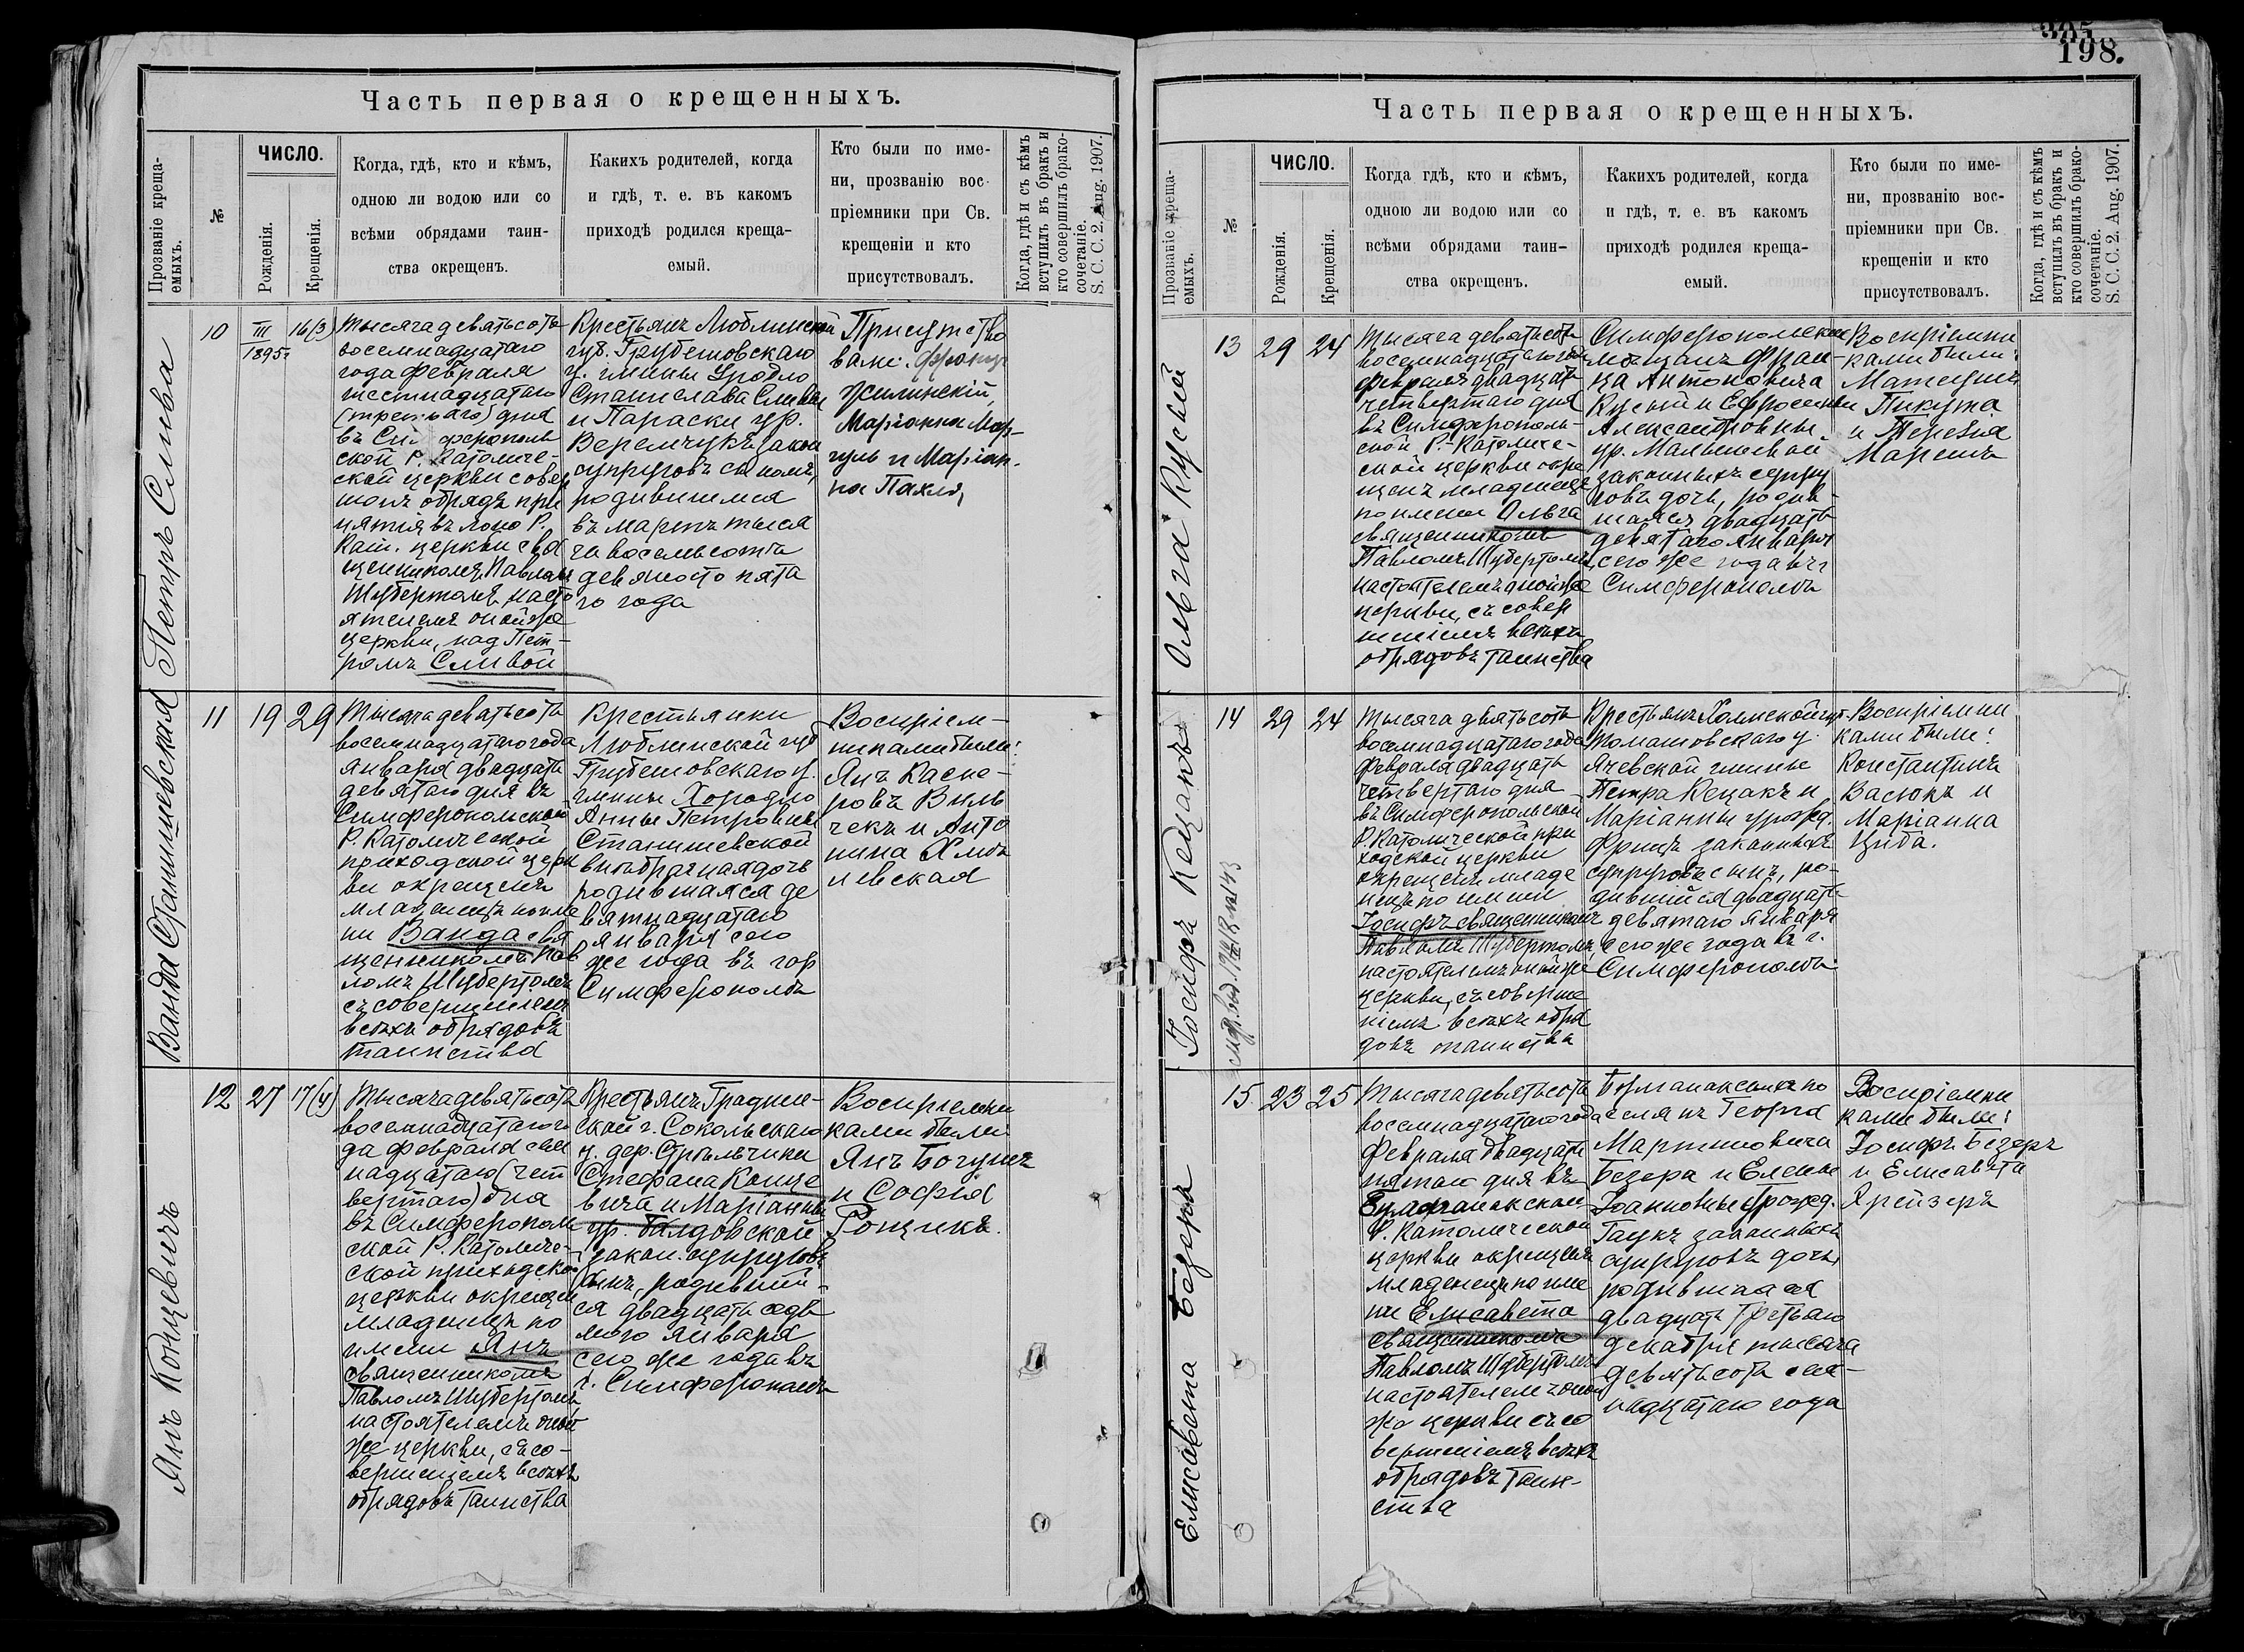 Часть первая о крещенныхъ.
Прозваніе креща-
емыхъ.
№
ЧИСЛО.
Рожденія.
Крещенія.
Когда, гдѣ, кто и кѣмъ,
одною ли водою или со
всѣми обрядами таин-
ства окрещенъ.
Какихъ родителей, когда
и гдѣ, т. е. въ какомъ
приходѣ родился креща-
емый.
Кто были по име-
ни, прозванію вос-
пріемники при Св.
крещеніи и кто
присутствовалъ.
Когда, гдѣ и съ кѣмъ
вступилъ въ бракъ и
кто совершилъ брако-
сочетаніе.
S. C. C. 2. Aug. 1907.
Петръ Слива
10
III
1895г
16(3)
Тысяча девятьсотъ
восемнадцатаго
года февраля
шестнадцатаго
(третьяго) дня
въ Симферополь
ской Р. Католиче-
ской церкви совер
шонъ обрядъ при
нятія въ лоно Р.
Кат. церкви свя
щенникомъ Павломъ
Шубертомъ насто
ятелемъ онойже
церкви, над Пет-
ромъ Сливой
Крестьянъ Люблинской
губ. Грубешовскаго
у. гмины Уродло
Станислава Сливы
и Параски ур.
Веремчукъ закон
супруговъ сыномъ,
родившимся
въ мартѣ тыся
ча восемьсотъ
девяносто пята
го года
Присутство
вали: Францъ
Жилинскій,
Маріанна Мар-
гуль и Маріан-
на Пахля,
Ванда Станишевская
11
19
29
Тысяча девятьсотъ
восемнадцатаго года
января двадцать
девятаго дня въ
Симферопольской
Р. Католической
приходской церк
ви окрещенъ
младенецъ по име
ни Ванда свя
щенникомъ Пав
ломъ Шубертомъ
съ совершеніемъ
всѣхъ обрядовъ
таинства
Крестьянки
Люблинской губ
Грубешовскаго у.
гмины Хородло
Анны Петровны
Станишевской
внѣбрачная дочь
родившаяся де
вятнадцатаго
января сего
же года въ гор
Симферополѣ
Воспріем-
никами были:
Янъ Каспе-
ровъ Виль
чекъ и Анто
нина Хмѣ
левская
Янъ Концевичъ
12
27
17(4)
Тысяча девятьсотъ
восемнадцатаго го
да февраля сем
надцатаго (чет
вертаго) дня
въ Симферополь
ской Р. Католиче-
ской приходской
церкви окрещенъ
младенецъ по
имени Янъ
священникомъ
Павломъ Шубертомъ
настоятелемъ оной
же церкви, съ со-
вершеніемъ всѣхъ
обрядовъ таинства
Крестьянъ Гроднен-
ской г. Сокольскаго
у. дер. Стрѣльчики
Стефана Конце
вича и Маріанны
ур. Балдовской
закон. супруговъ
сынъ, родившій-
ся двадцать седь
мого января
сего же года въ
г. Симферополѣ
Воспріемни
ками были
Янъ Богушъ
и Софія
Рощикъ.
198.
Часть первая о крещенныхъ.
Прозваніе креща-
емыхъ.
№
ЧИСЛО.
Рожденія.
Крещенія.
Когда гдѣ, кто и кѣмъ,
одною ли водою или со
всѣми обрядами таин-
ства окрещенъ.
Какихъ родителей, когда
и гдѣ, т. е. въ какомъ
приходѣ родился креща-
емый.
Кто были по име-
ни, прозванію вос-
пріемники при Св.
крещеніи и кто
присутствовалъ.
Когда, гдѣ и съ кѣмъ
вступилъ въ бракъ и
кто совершилъ брако-
сочетаніе.
S. C. C. 2. Aug. 1907.
Ольга Кусый
13
29
24
Тысяча девятьсотъ
восемнадцатаго года
февраля двадцать
четвертаго дня
въ Симферополь-
ской Р.-Католиче-
ской церкви окре
щенъ младенецъ
по имени Ольга
священникомъ
Павломъ Шубертомъ
настоятелемъ онойже
церкви, съ совер
шеніемъ всѣхъ
обрядовъ таинства
Симферопольскихъ
мѣщанъ Фран-
ца Антоновича
Кусый и Ефросиніи
Александровны
ур. законныхъ супру
говъ дочь, родив-
шаяся двадцать
девятаго января
сего же года въ г
Симферополѣ
Воспріемни
ками были:
Матеушъ
Пикута
и Терезія
Марешъ
Іосифъ Кецакъ
14
29
24
Тысяча девятьсотъ
восемнадцатаго года
февраля двадцать
четвертаго дня
въ Симферопольской
Р. Католической при
ходской церкви
окрещенъ младе
нецъ по имени
Іосифъ священникомъ
Павломъ Шубертомъ,
настоятелемъ онойже
церкви, съ соверше
ніемъ всѣхъ обря
довъ таинства
Крестьянъ Холмской губ.
Томашовскаго у.
Ячевской гмины
Петра Кецакъ и
Маріанны урожд.
Фринъ законныхъ
супруговъ сынъ, ро-
дившійся двадцать
девятаго января
сего же года въ г.
Симферополѣ
Воспріемни
ками были:
Константинъ
Васюкъ и
Маріанна
Цыба.
Елисавета Безеръ
15
23
25
Тысяча девятьсотъ
восемнадцатаго года
Февраля двадцать
пятаго дня въ
Р. Католической
церкви окрещенъ
младенецъ по име
ни Елисавета
священникомъ
Павломъ Шубертомъ
настоятелемъ оной
же церкви съ со
вершеніемъ всѣхъ
обрядовъ таин-
ства
поселянъ Георгія
Мартиновича
Безера и Елены
Іоанновны урожд.
Гаукъ законныхъ
супруговъ дочь
родившаяся
двадцать третьяго
декабря тысяча
девятьсотъ сем-
надцатаго года
Воспріемни
ками были:
Іосифъ Безеръ
и Елисавета
Крейзеръ